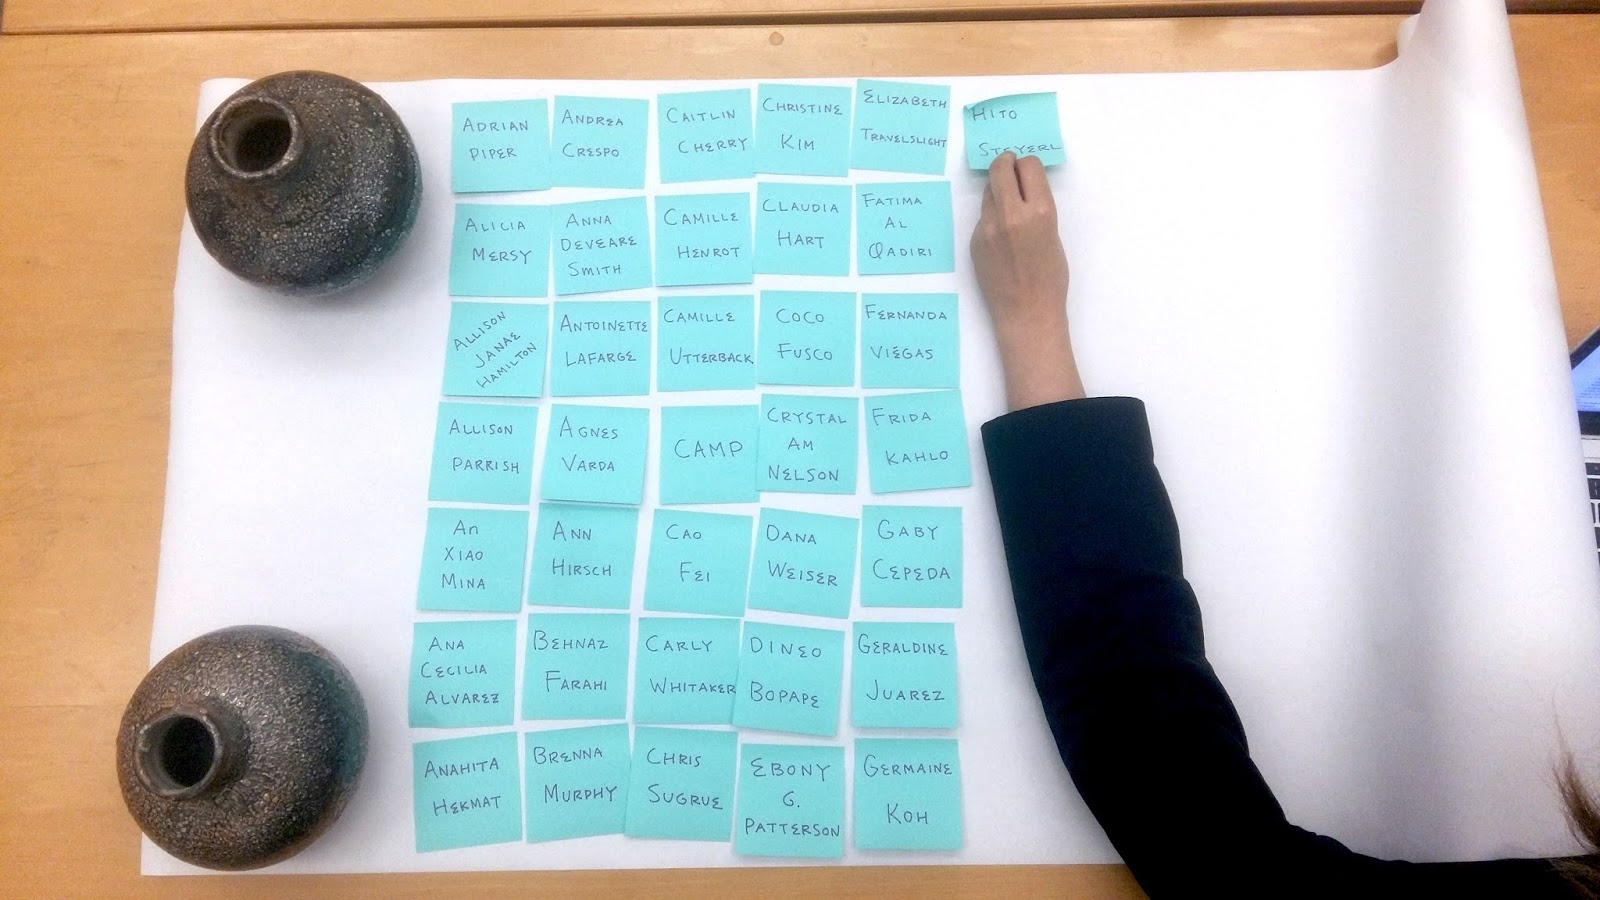 ADRIAN
PIPER
ALICIA
MERSY
ALLISON
JANAE
HAMILTON
ALLISON
PARRISH
An
XIAO
MINA
ANA
CECILIA
ALVAREZ
ANAHITA
HEKMAT
ANDREA
CRESPO
ANNA
DEVEARE
SMITH
ANTOINETTE
LAFARGE
AGNES
VARDA
ANN
HIRSCH
BEHNAZ
FARAHI
BRENNA
MURPHY
CAITLIN
CHERRY
CAMILLE
HENROT
CAMILLE
UTTERBACK
CAMP
CAO
FEI
CARLY
WHITAKER
CHRIS
SUGRUE
CHRISTINE
KIM
CLAUDIA
HART
COCO
FUSCO
CRYSTAL
AM
NELSON
DANA
WEISER
DINEO
BOPAPE
EBONY
G.
PATTERSON
ELIZABETH
TRAVELSLIGHT
FATIMA
AL
QADIRI
FERNANDA
VIÉGAS
FRIDA
KAHLO
GABY
CEPEDA
GERALDINE
JUAREZ
GERMAINE
KOH
HITO
STEYERL